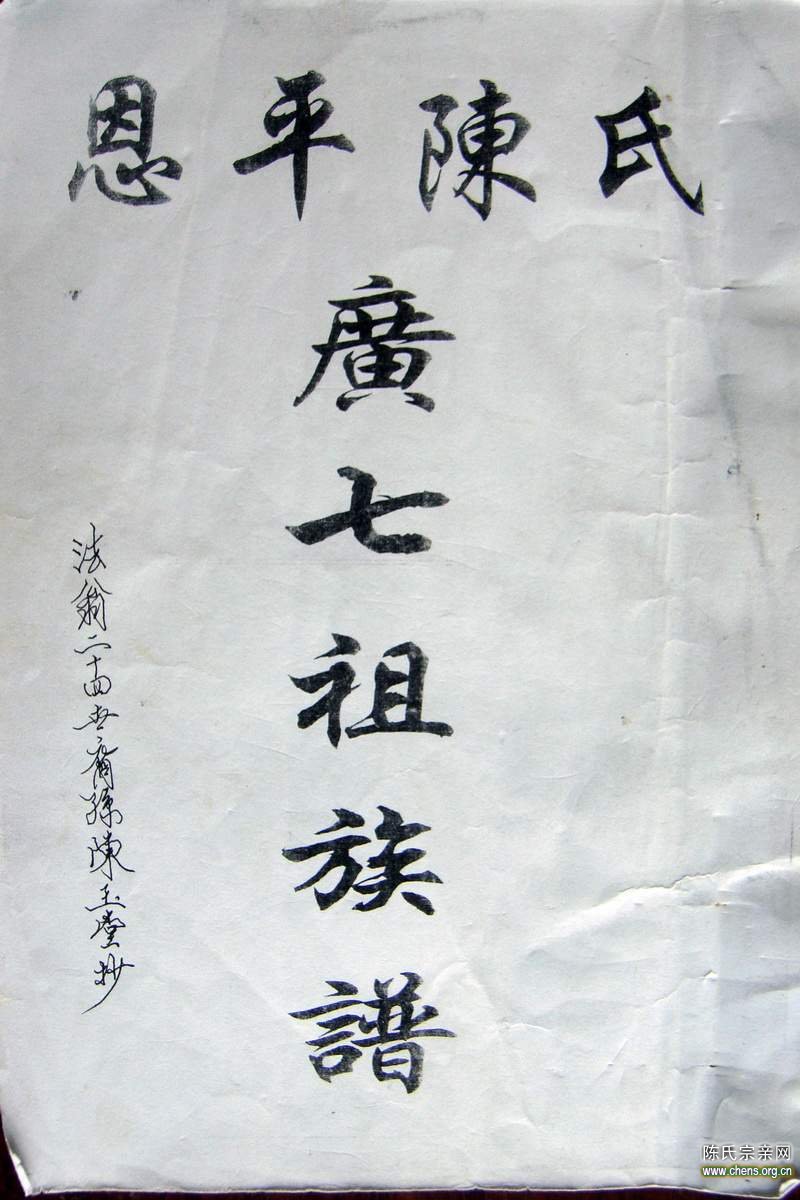 恩平陳氏
廣七祖族譜
法翁二十四世裔孫陳玉堂抄
陈氏宗亲网
www.chens.org.cn